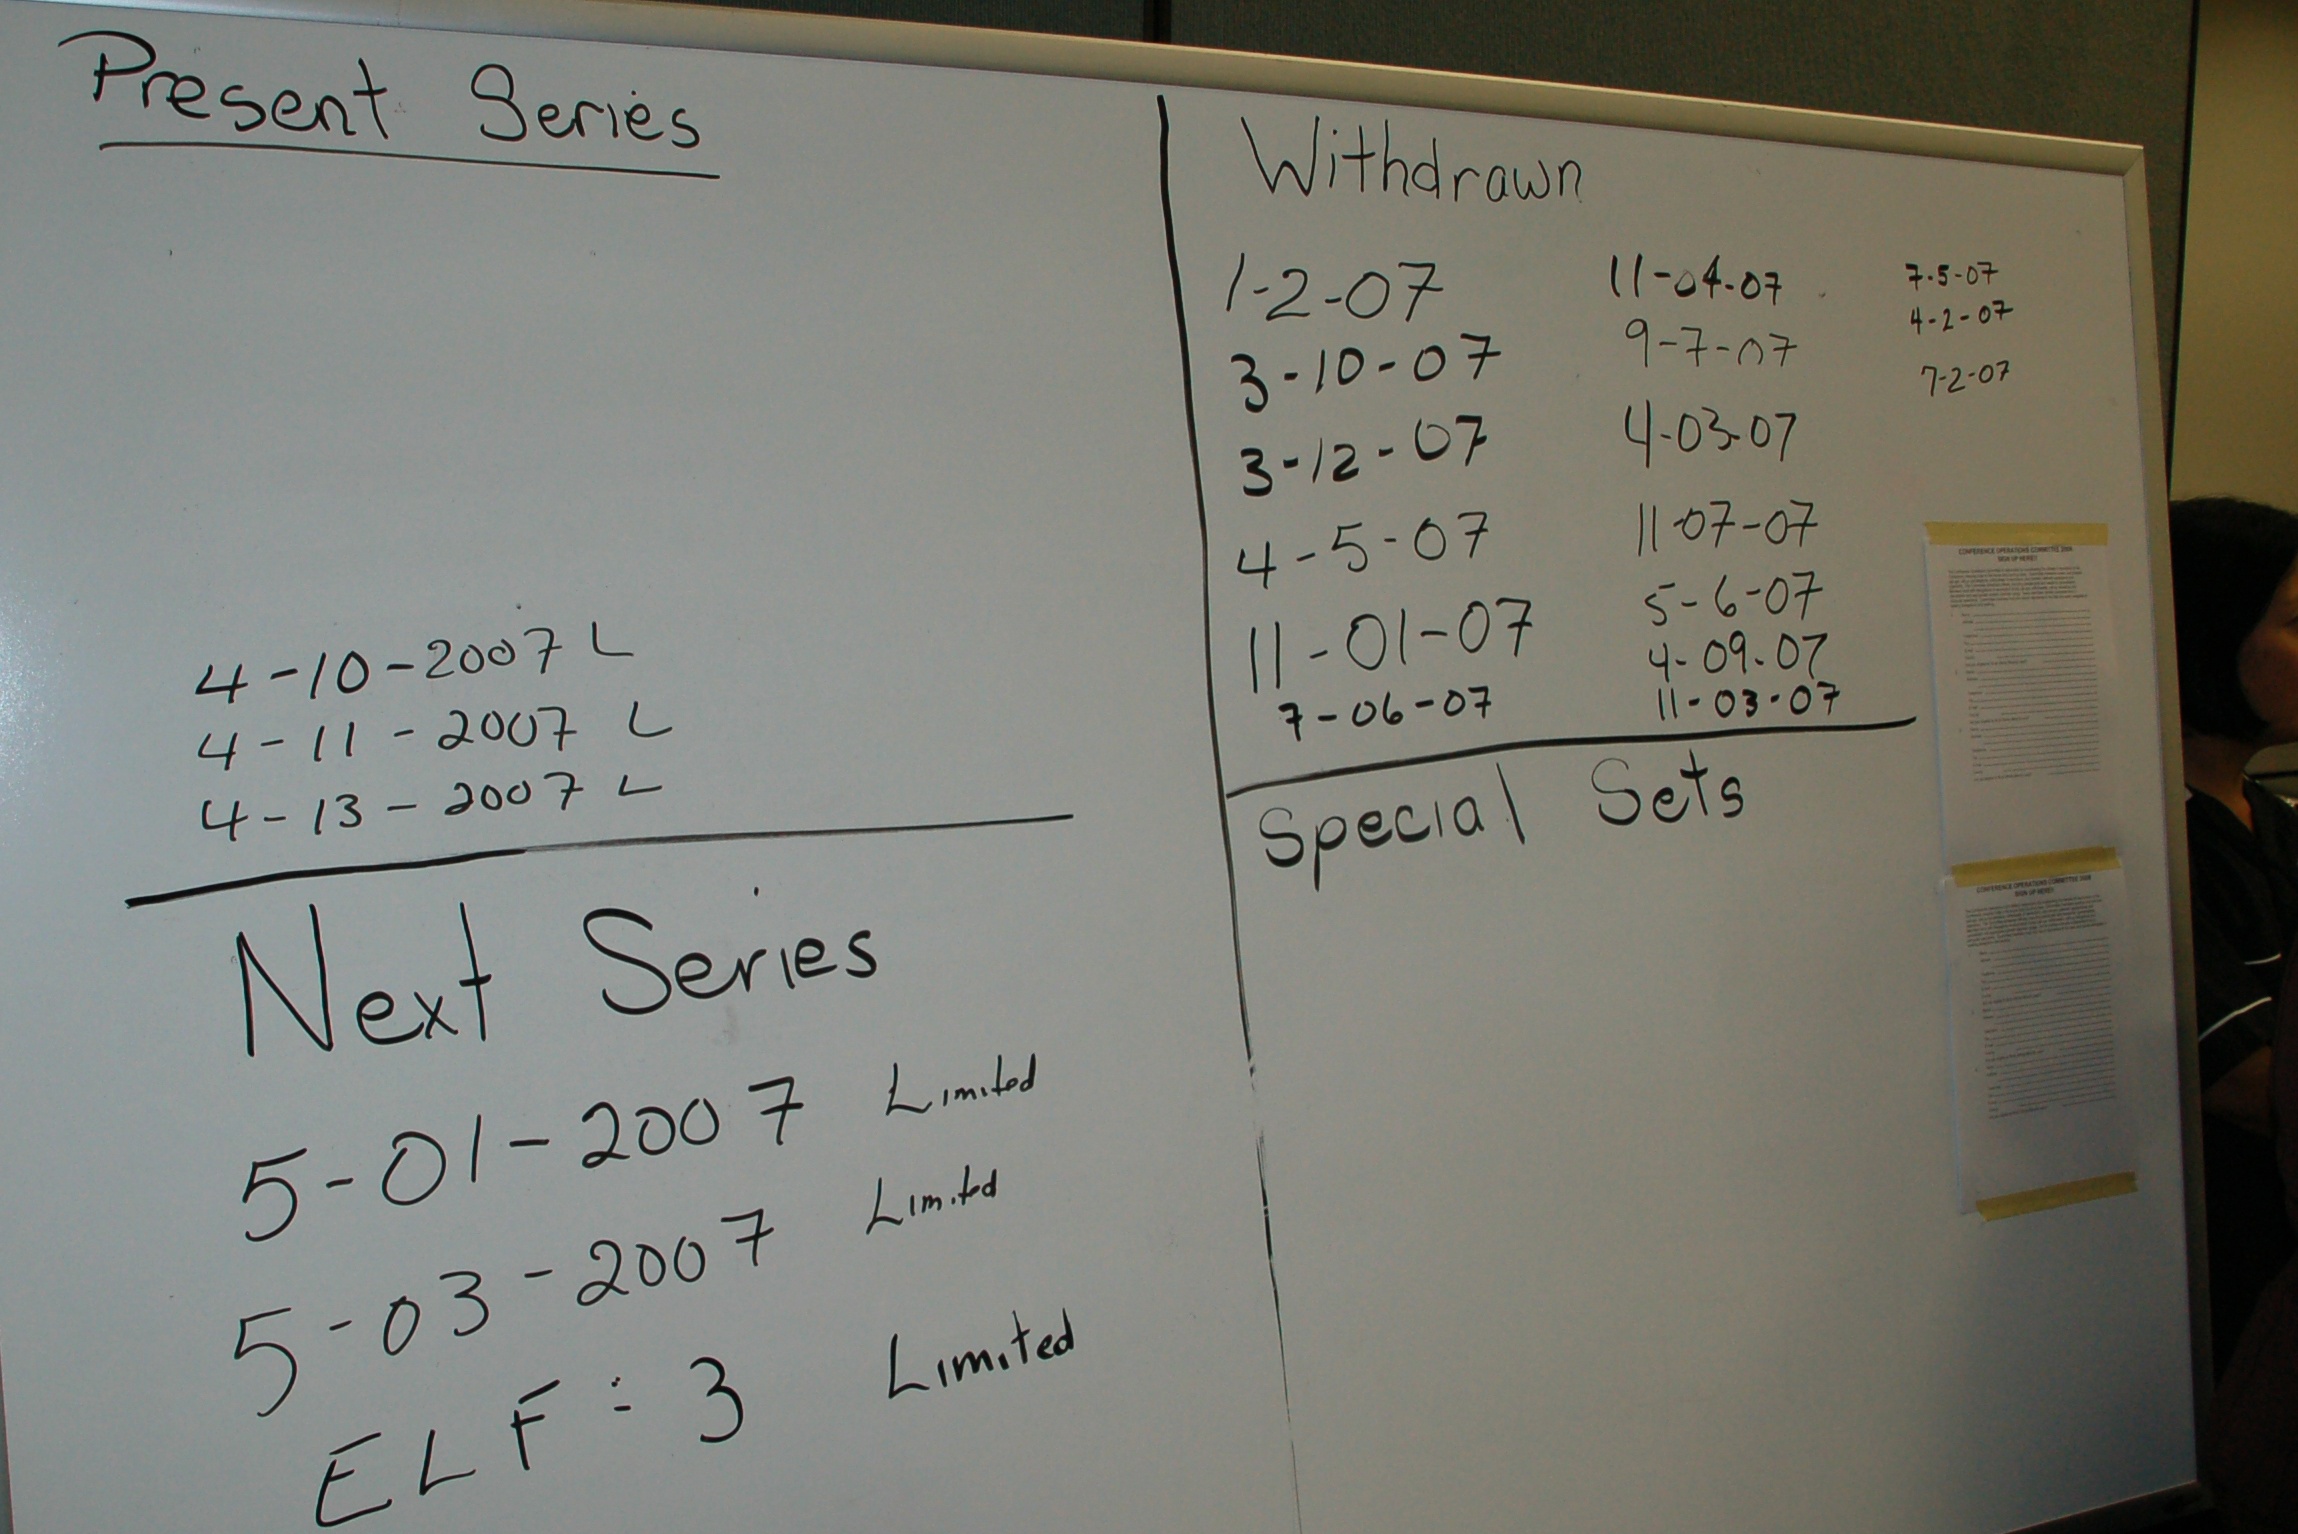 Present Series
4-10-2007 L
4-11-2007 L
4-13-2007 L
Next Series
5-01-2007 Limited
5-03-2007 Limited
ELF: 3 Limited
Withdrawn
1-2-07
3-10-07
3-12-07
4-5-07
11-01-07
7-06-07
11-04-07
9-7-07
4-03-07
11-07-07
5-6-07
4-09-07
11-03-07
7-5-07
4-2-07
7-2-07
Special Sets
CONFERENCE OPERATIONS COMMITTEE 2008
SIGN UP HERE!!
CONFERENCE OPERATIONS COMMITTEE 2008
SIGN UP HERE!!